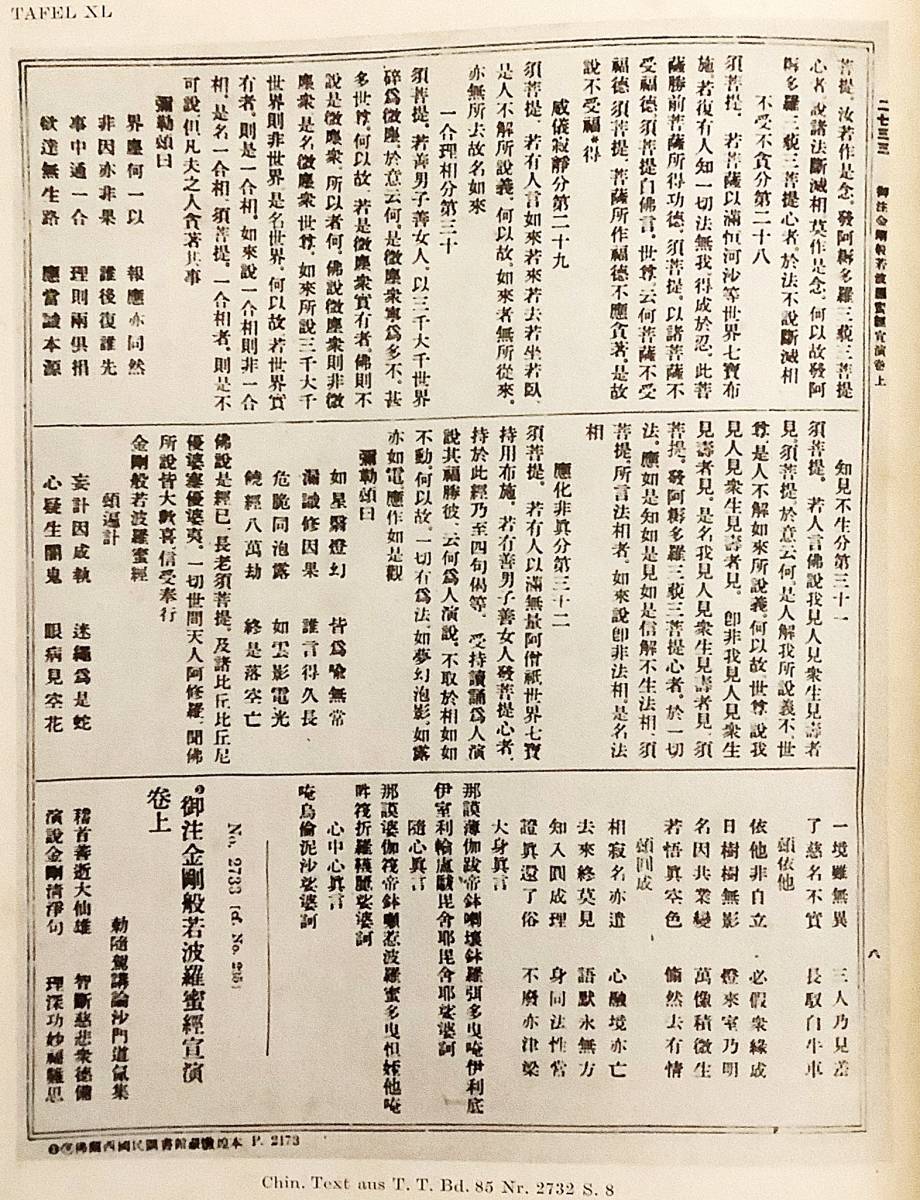 TAFEL XL
二七三三 御注金剛般若波羅蜜經宣演卷上
八
菩提。汝若作是念。發阿耨多羅三藐三菩提
心者。說諸法斷滅相。莫作是念。何以故。發阿
耨多羅三藐三菩提心者。於法不說斷滅相
不受不貪分第二十八
須菩提。若菩薩以滿恒河沙等世界七寶布
施。若復有人知一切法無我。得成於忍。此菩
薩勝前菩薩所得功德。須菩提。以諸菩薩不
受福德。須菩提白佛言。世尊。云何菩薩不受
福德。須菩提。菩薩所作福德不應貪著。是故
說不受福得
威儀寂靜分第二十九
須菩提。若有人言如來若來若去若坐若臥。
是人不解所說義。何以故。如來者無所從來。
亦無所去故名如來
一合理相分第三十
須菩提。若善男子善女人。以三千大千世界
碎為微塵。於意云何。是微塵衆寧為多不。甚
多世尊。何以故。若是微塵衆實有者。佛則不
說是微塵衆。所以者何。佛說微塵衆則非微
塵衆。是名微塵衆。世尊。如來所說三千大千
世界則非世界。是名世界。何以故。若世界實
有者。則是一合相。如來說一合相則非一合
相。是名一合相。須菩提。一合相者。則是不
可說。但凡夫之人貪著其事
彌勒頌曰
界塵何一以 報應亦同然
非因亦非果 誰後復誰先
事中通一合 理則兩俱捐
欲達無生路 應當識本源
知見不生分第三十一
須菩提。若人言佛說我見人見衆生見壽者
見。須菩提。於意云何。是人解我所說義不。世
尊。是人不解如來所說義。何以故。世尊說我
見人見衆生見壽者見。即非我見人見衆生
見壽者見。是名我見人見衆生見壽者見。須
菩提。發阿耨多羅三藐三菩提心者。於一切
法。應如是知如是見如是信解不生法相。須
菩提。所言法相者。如來說即非法相是名法
相
應化非真分第三十二
須菩提。若有人以滿無量阿僧祇世界七寶
持用布施。若有善男子善女人發菩提心者。
持於此經乃至四句偈等。受持讀誦為人演
說其福勝彼。云何為人演說。不取於相如如
不動。何以故。一切有為法。如夢幻泡影。如露
亦如電。應作如是觀
彌勒頌曰
如星翳燈幻 皆為喻無常
漏識修因果 誰言得久長
危脆同泡露 如雲影電光
饒經八萬劫 終是落空亡
佛說是經已。長老須菩提。及諸比丘比丘尼
優婆塞優婆夷。一切世間天人阿修羅。聞佛
所說皆大歡喜。信受奉行
金剛般若波羅蜜經
頌遍計
妄計因成執 迷繩為是蛇
心疑生闇鬼 眼病見空花
一境雖無異 三人乃見差
了慈名不實 長馭白牛車
頌依他
依他非自立 必假衆緣成
日樹樹無影 燈來室乃明
名因共業變 萬像積微生
若悟真空色 翛然去有情
頌圓成
相寂名亦遣 心融境亦亡
去來終莫見 語默永無方
知入圓成理 身同法性常
證真還了俗 不廢亦津梁
大身真言
那謨薄伽跋帝鉢喇壤鉢羅弭多曳唵伊利底
伊室利輸盧馱毘舍耶毘舍耶娑婆訶
隨心真言
那謨婆伽筏帝鉢喇惹波羅蜜多曳怛姪他唵
吽筏折羅䪍麗娑婆訶
心中心真言
唵烏倫泥沙娑婆訶
No. 2733 [cf. No. 235]
御注金剛般若波羅蜜經宣演
卷上
勅隨駕講論沙門道氤集
稽首善逝大仙雄 智斷慈悲衆德備
演說金剛清淨句 理深功妙福難思
佛蘭西國民圖書館藏燉煌本 P. 2173
Chin. Text aus T. T. Bd. 85 Nr. 2732 S. 8